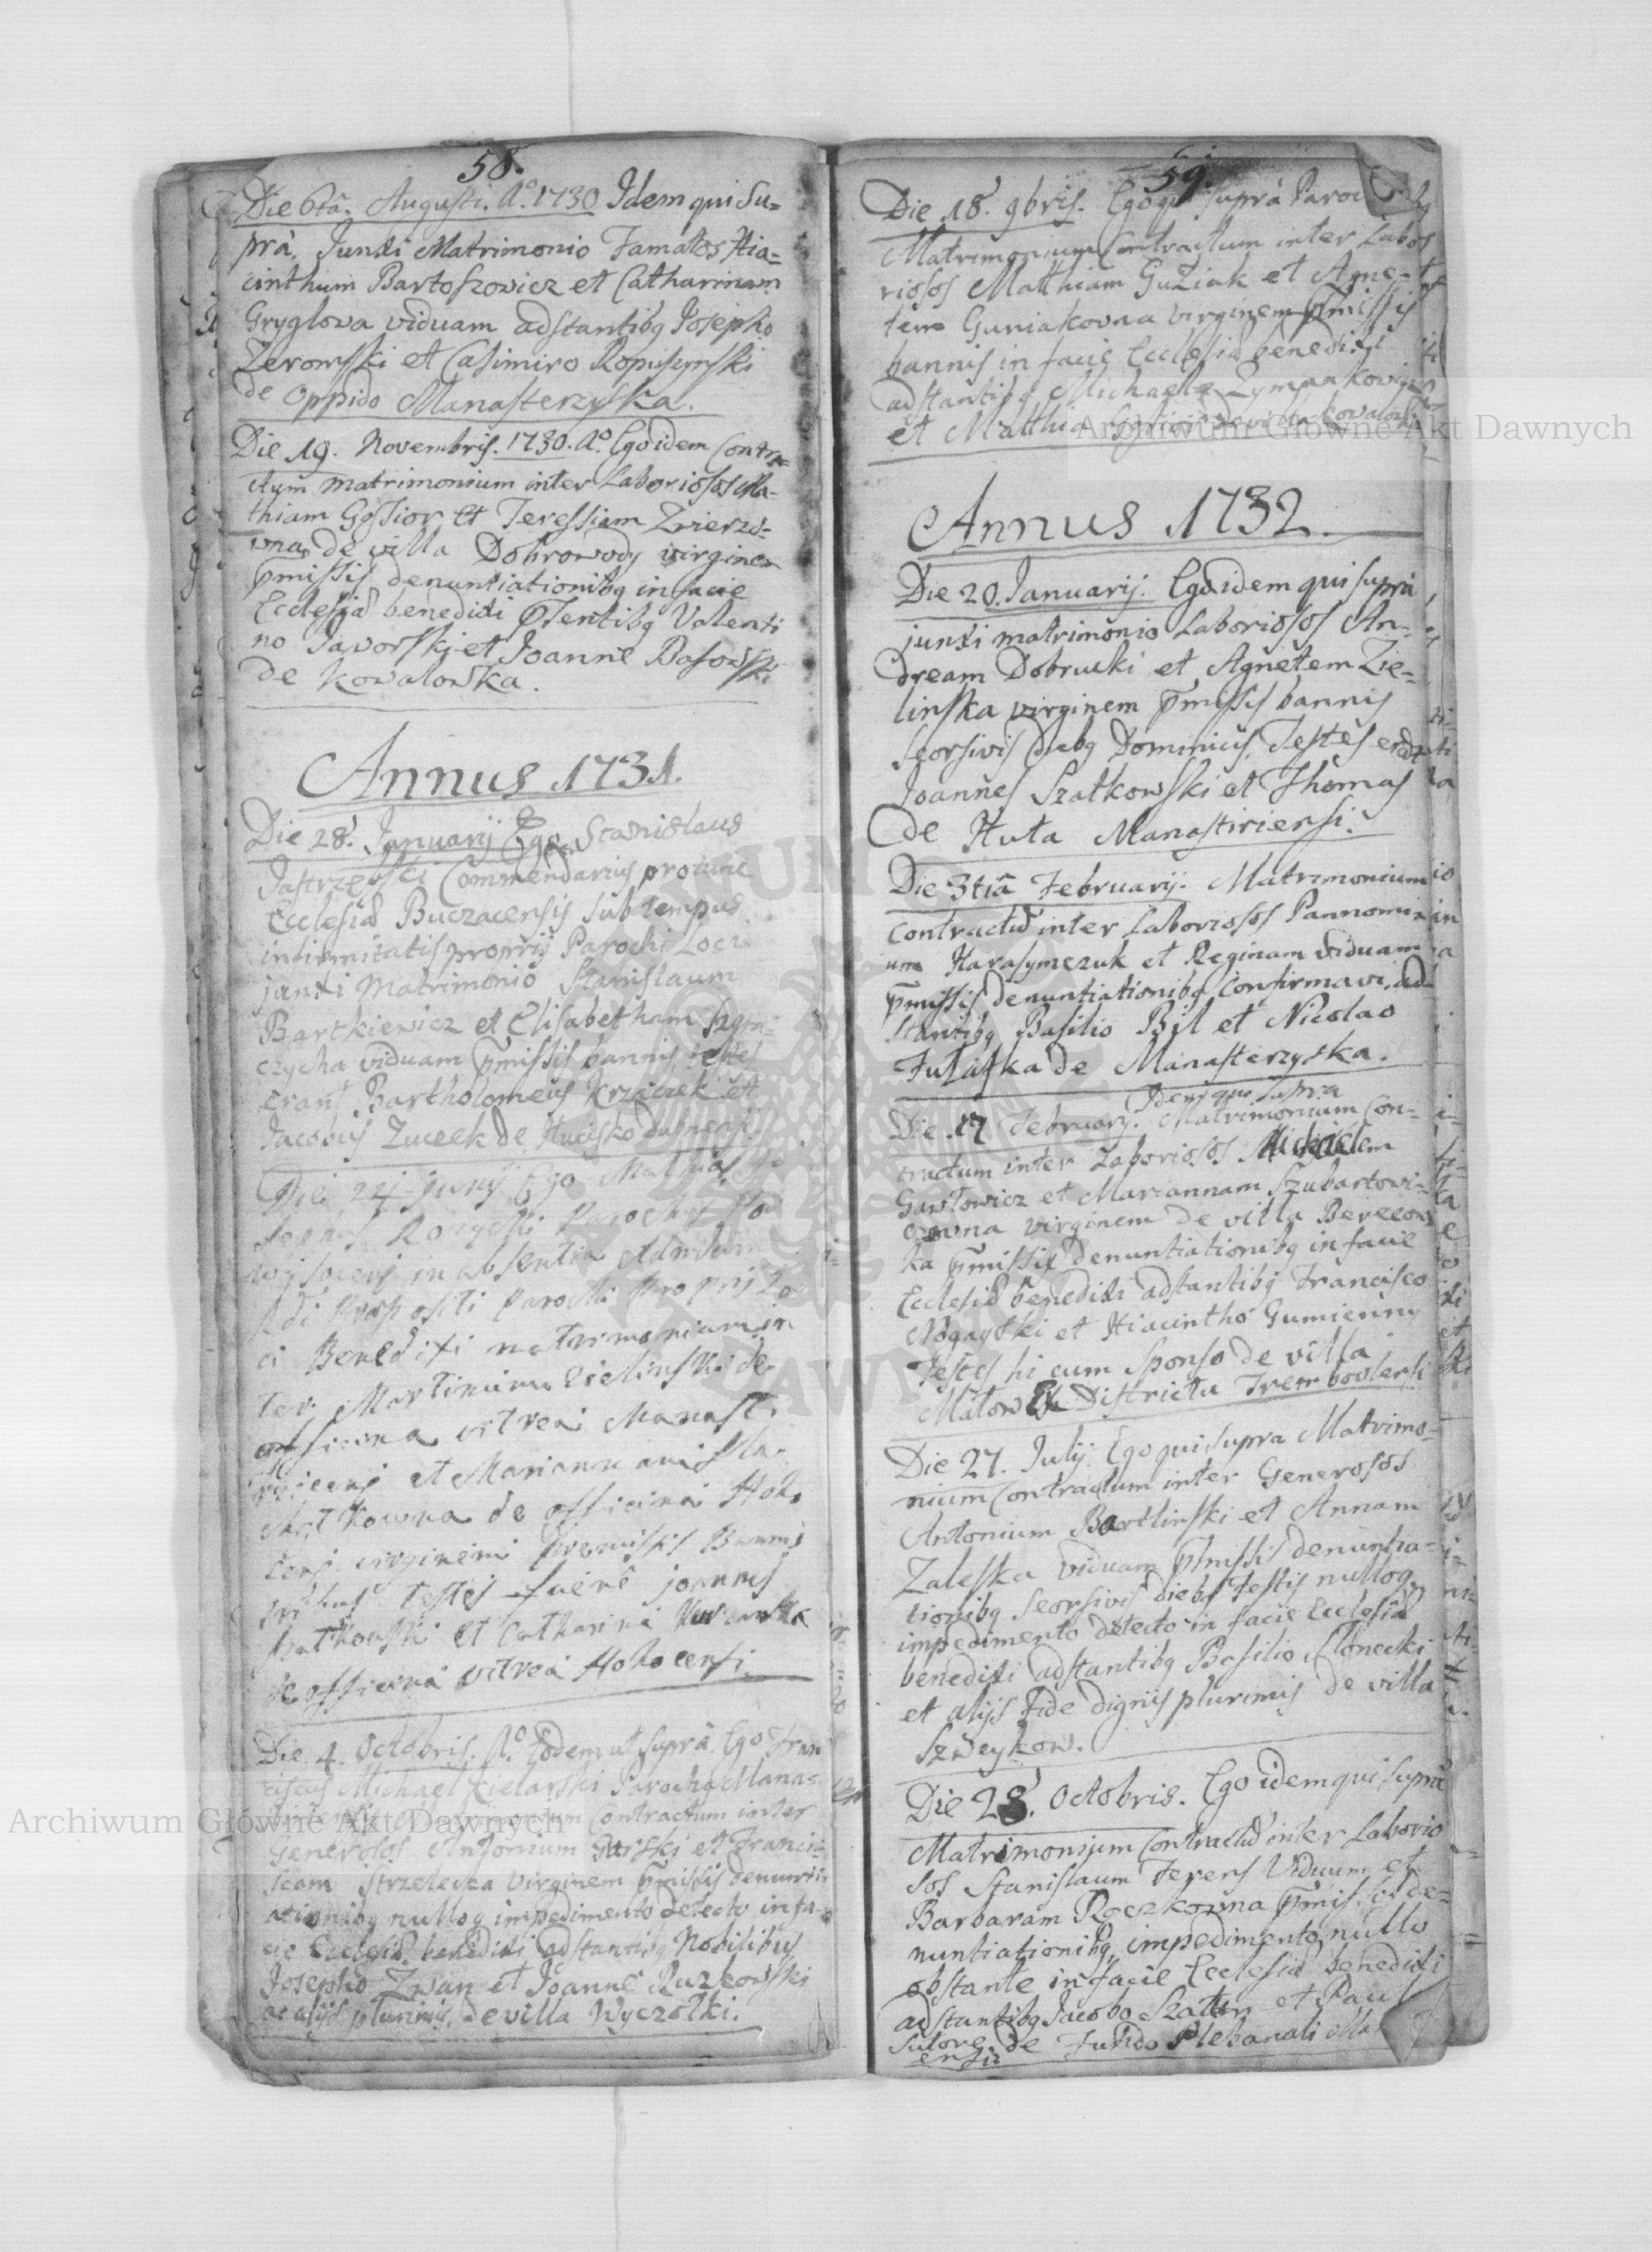 58.
Die 6tâ. Augusti. Aº. 1730 Idem qui su=
prà, Junxi Matrimonio Famatos Hia=
cinthum Bartoszowicz et Catharinam
Gryglowa viduam adstantibq Josepho
Zerowski et Casimiro Ropuszynski
de Oppido Manasterzyska.
Die 19. Novembris. 1730. Aº. Ego idem Contra=
ctum matrimonium inter Laboriosos Ma-
thiam Gossior et Teressiam Zwierzo-
wna de villa Dobrowody virginem
pmissis denuntiationibq in facie
Ecclesiæ benedixi Psentibq Valenti
no Javorski et Joanne Basowski
de Kowalowka.
Annus 1731.
Die 28. Januarij Ego Stanislaus
Jastrzęmski Commendarius protunc
Ecclesiæ Buczacensis sub tempus
infirmitatis proprij Parochi Loci
junxi Matrimonio Stanislaum
Bartkiewicz et Elisabetham Szym=
czycha viduam pmissis bannis, testes
erant Bartholomeus Krzaczek et
Jacobus Zuceek de Hucisko
Die 24 Junij Ego Mathias
Rozycki Parochus
in absentia Admodum
Rdi Præpositi Parochi Proprij Lo
ci Benedixi matrimonium in
ter Martinum Zielinski de
officina vitrea Manast.
et Mariannam Sza.
tkowna de officina Hoho
censi virginem Premissis Bannis
tribus testes fuere Joannes
Szatkowski et Catharina
de officina vitrea Hohocensi.
Die 4. Octobris. Aº. Eodem ut suprà Ego Fran
ciscus Michael Kielarski Parochq Mana=
Contractum inter
Generosos Antonium Gurski et Franci=
scam Strzelecka Virginem pmissis denunti
ationibq nulloq impedimento detecto in fa=
cie Ecclesiæ benedixi adstantibq Nobilibus
Josepho Zwan et Joanne Ruzkowski
ac alijs plurimis, de villa Wyczolki.
59.
Die 18. 9bris. Ego qui suprà
Matrimonium Contractum inter Labo
riosos Matthiam Guziak et Agne=
tem Guniakowna virginem pmissis
bannis in facie Ecclesiæ benedixi
adstantibq Michaele Zymankowicz
et Matthia Gossior de villa Kowalowka
Annus 1732.
Die 20. Januarij. Ego idem qui suprà
junxi matrimonio Laboriosos An=
dream Dobrucki et Agnetem Zie=
linska virginem pmissis bannis
seorsivis diebq Dominicis, Testes erant
Joannes Szatkowski et Thomas
de Huta Manastiriensi.
Die 3tiâ Februarij. Matrimonium
contractũ inter Laboriosos Pannomi
um Harasymczuk et Reginam viduam
pmissis denuntiationibq confirmavi, ad
stantibq Basilio Bil et Nicolao
Fulatka de Manasterzyska.
Idem qui supra
Die 17 Februarij. Matrimonium Con=
tractum inter Laboriosos Michaelem
Gawłowicz et Mariannam Szubartowi=
czowna virginem de villa Berezow
ka pmissis denuntiationibq in facie
Ecclesiæ benedixi adstantibq Francisco
Nogayski et Hiacintho Gumienny
Testes hi cum Sponso de villa
Districtu Trembowlensi
Die 27. Julij Ego qui supra Matrimo=
nium Contractum inter Generosos
Antonium Bartlinski et Annam
Zaleska viduam pmissis denuntia=
tionibq seorsivis diebq Festis nulloq
impedimento detecto in facie Ecclesiæ
benedixi adstantibq Basilio Slonecki
et alijs Fide dignis plurimis de villa
Szweykow.
Die 28. Octobris. Ego idem qui suprà
Matrimonium Contractũ inter Laborio
sos Stanislaum Ferens Viduum et
Barbaram Roczkowna pmissis de=
nuntiationibq, impedimento nullo
obstante in facie Ecclesiæ benedixi
adstantibq Jacobo Szatun et Paul
Sutore de Fundo Plebanali Ma
ensi
Archiwum Główne Akt Dawnych
Archiwum Główne Akt Dawnych